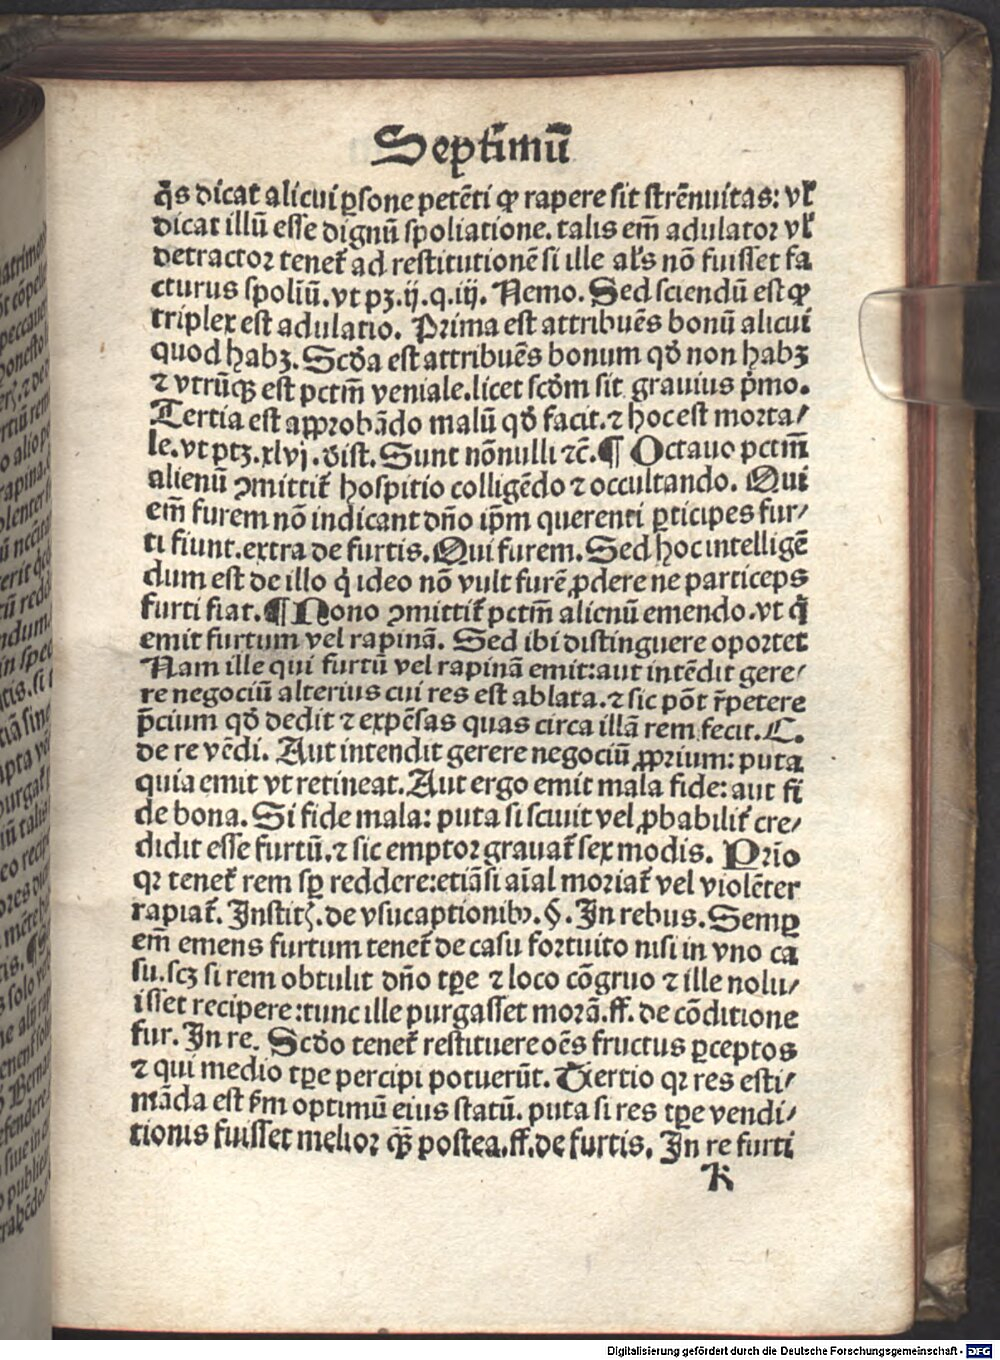 Septimū
q̄s dicat̄ alicui ꝑsone petēti ꝙ rapere sit strēnuitas: vl̓
dicat illū esse dignū spoliatione. talis em̄ adulator vl̓
detractor tenet̄ ad restitutionē si ille al̓s nō fuisset fa
cturus spoliū. vt pꝫ. ij. q. iij. Nemo. Sed sciendū est ꝙ
triplex est adulatio. Prima est attribuēs bonū alicui
quod habꝫ. Scd̓a est attribuēs bonum qd̓ non habꝫ
⁊ vtrūqꝫ est pctm̄ veniale. licet scd̓m sit grauius p̄mo.
Tertia est approbādo malū qd̓ facit. ⁊ hoc est morta/
le. vt ptꝫ. xlvj. dist. Sunt nōnulli ⁊c̄. ¶ Octauo pctm̄
alienū ꝯmittit̄ hospitio colligēdo ⁊ occultando. Qui
em̄ furem nō indicant dn̄o ip̄m querenti ꝑticipes fur/
ti fiunt. extra de furtis. Qui furem. Sed hoc intelligē
dum est de illo q̇ ideo nō vult furē ꝓdere ne particeps
furti fiat. ¶ Nono ꝯmittit̄ pctm̄ alienū emendo. vt q̇
emit furtum vel rapinā. Sed ibi distinguere oportet
Nam ille qui furtū vel rapinā emit: aut intēdit gere/
re negociū alterius cui res est ablata. ⁊ sic pōt r̄petere
p̄cium qd̓ dedit ⁊ expēsas quas circa illā rem fecit. C.
de re vēdi. Aut intendit gerere negociū ꝓprium: puta
quia emit vt retineat. Aut ergo emit mala fide: aut fi
de bona. Si fide mala: puta si sciuit vel ꝓbabilit̄ cre/
didit esse furtū. ⁊ sic emptor grauat̄ sex modis. Prīo
qꝛ tenet̄ rem sꝑ reddere: etiā si aīal moriat̄ vel violēter
rapiat̄. Instit̓. de vsucaptionibꝰ. §. In rebus. Semꝑ
em̄ emens furtum tenet̄ de casu fortuito nisi in vno ca
su. scꝫ si rem obtulit dn̄o tꝑe ⁊ loco cōgruo ⁊ ille nolu/
isset recipere: tunc ille purgasset morā. ff. de cōditione
fur. In re. Scd̓o tenet̄ restituere oēs fructus ꝑceptos
⁊ qui medio tꝑe percipi potuerūt. Tertio qꝛ res esti/
māda est ẜm optimū eius statū. puta si res tꝑe vendi/
tionis fuisset melior qꝫ̄ postea. ff. de furtis. In re furti
k
Digitalisierung gefördert durch die Deutsche Forschungsgemeinschaft - DFG